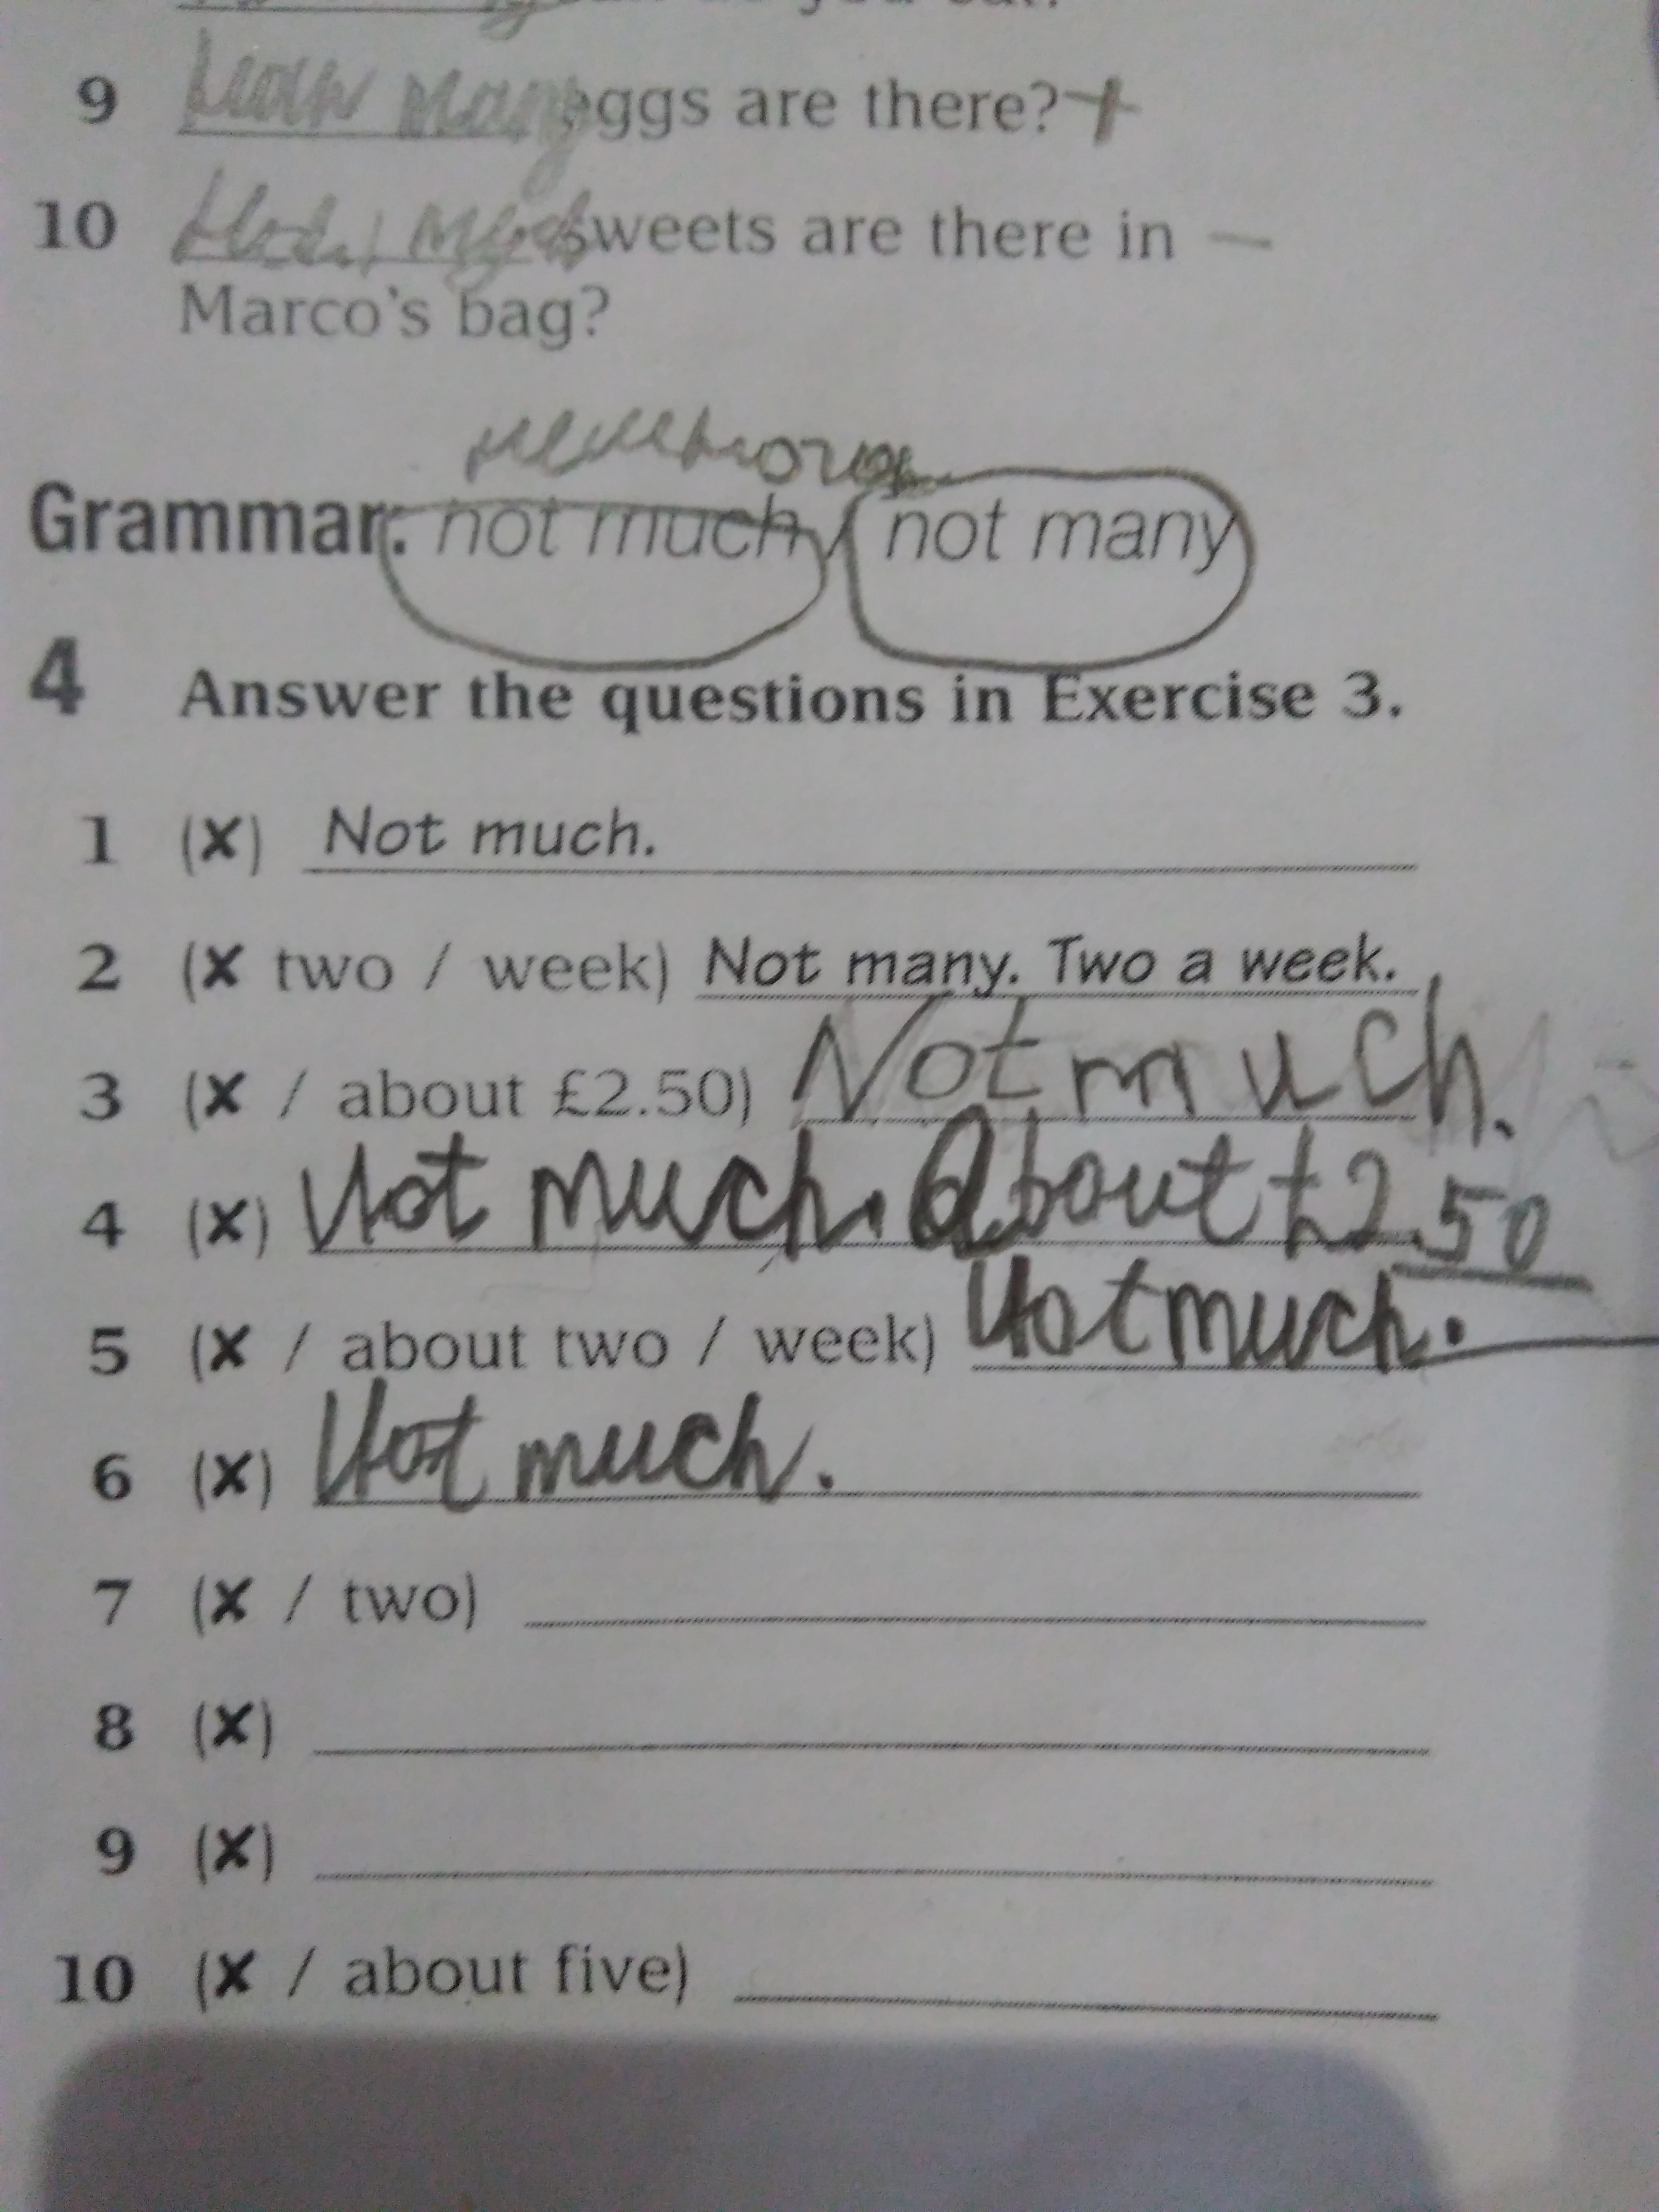 9 How many eggs are there? +
10 sweets are there in —
Marco's bag?
Grammar: not much / not many
4 Answer the questions in Exercise 3.
1 (✗) Not much.
2 (✗ two / week) Not many. Two a week.
3 (✗ / about £2.50) Not much.
4 (✗) Not much. About £2.50
5 (✗ / about two / week) Not much.
6 (✗) Not much.
7 (✗ / two)
8 (✗)
9 (✗)
10 (✗ / about five)